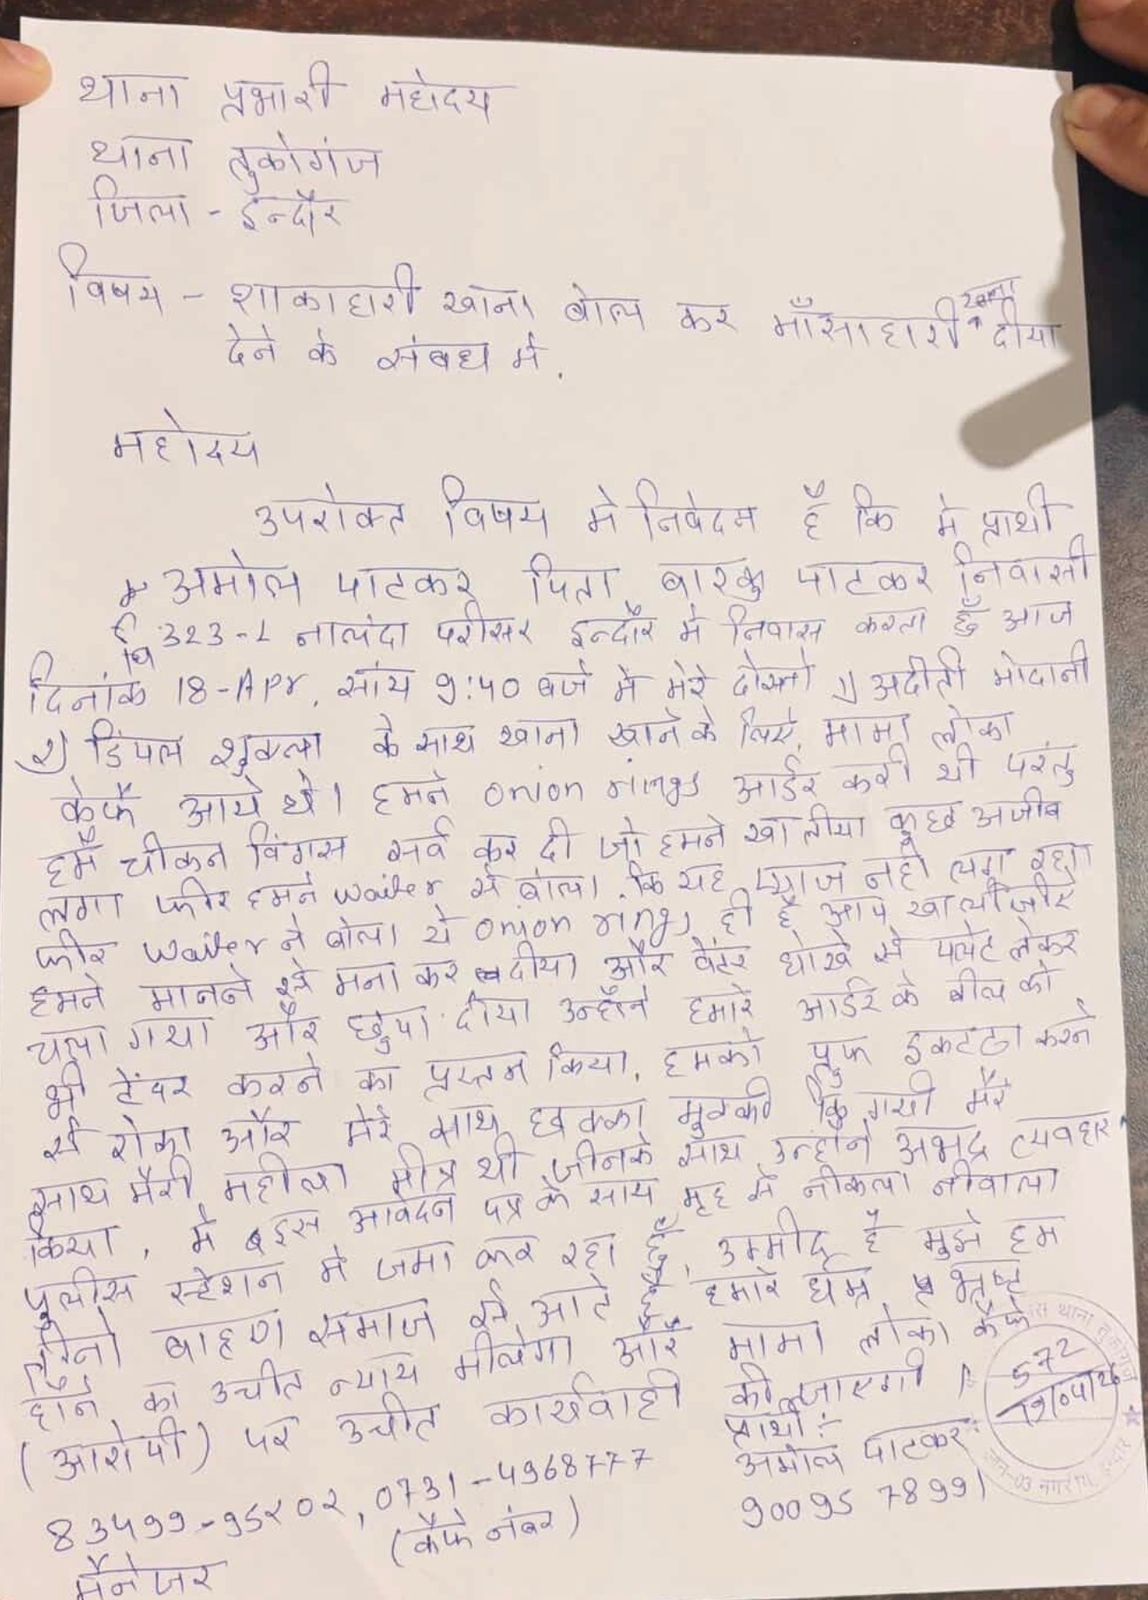 थाना प्रभारी महोदय
थाना तुकोगंज
जिला - इन्दौर
विषय - शाकाहारी खाना बोल कर माँसाहारी खाना दीया
देने के संबध मे.
महोदय
उपरोक्त विषय मे निवेदन हैं कि मे प्रार्थी
अमोल पाटकर पिता बारकु पाटकर निवासी
323-L नालंदा परीसर इन्दौर मे निवास करता हूँ आज
दिनांक 18-Apr. सांय 9:40 बजे मे मेरे दोस्तो 1) अदीती मोदानी
2) डिंपल शुक्ला के साथ खाना खाने के लिए, मामा लोका
केफै आये थे। हमने onion rings आर्डर करी थी परंतु
हमै चीकन विंगस सर्व कर दी जो हमने खा लीया कुछ अजीब
लगा फीर हमने waiter से बोला. कि यह प्याज नही लग रहा
फीर waiter ने बोला ये onion rings ही है आप खा लीजीए
हमने मानने से मना कर दीया और वेटर धोखे से पलेट लेकर
चला गया और छुपा दीया उन्होने हमारे आर्डर के बील को
भी टेंपर करने का प्रयत्न किया. हमको प्रुफ इकटठा करने
से रोका और मेरे साथ धक्का मुक्की कि गयी मेरे
साथ मैरी महीला मीत्र थी जीनके साथ उन्होने अभद्र व्यवहार
किया, मे इस आवेदन पत्र के साथ मुह से नीकला नीवाला
पुलीस स्टेशन मे जमा कर रहा हूँ, उम्मीद है मुझे हम
तीनो ब्राहण समाज से आते हैं हमारे धर्म भ्रष्ट
होने का उचीत न्याय मीलेगा और मामा लोका कैफे
(आरोपी) पर उचीत कार्यवाही की जाएगी।
प्रार्थी:
अमोल पाटकर
83499-95202, 0731-4968777 90095 78991
मैनेजर (कैफे नंबर)
572